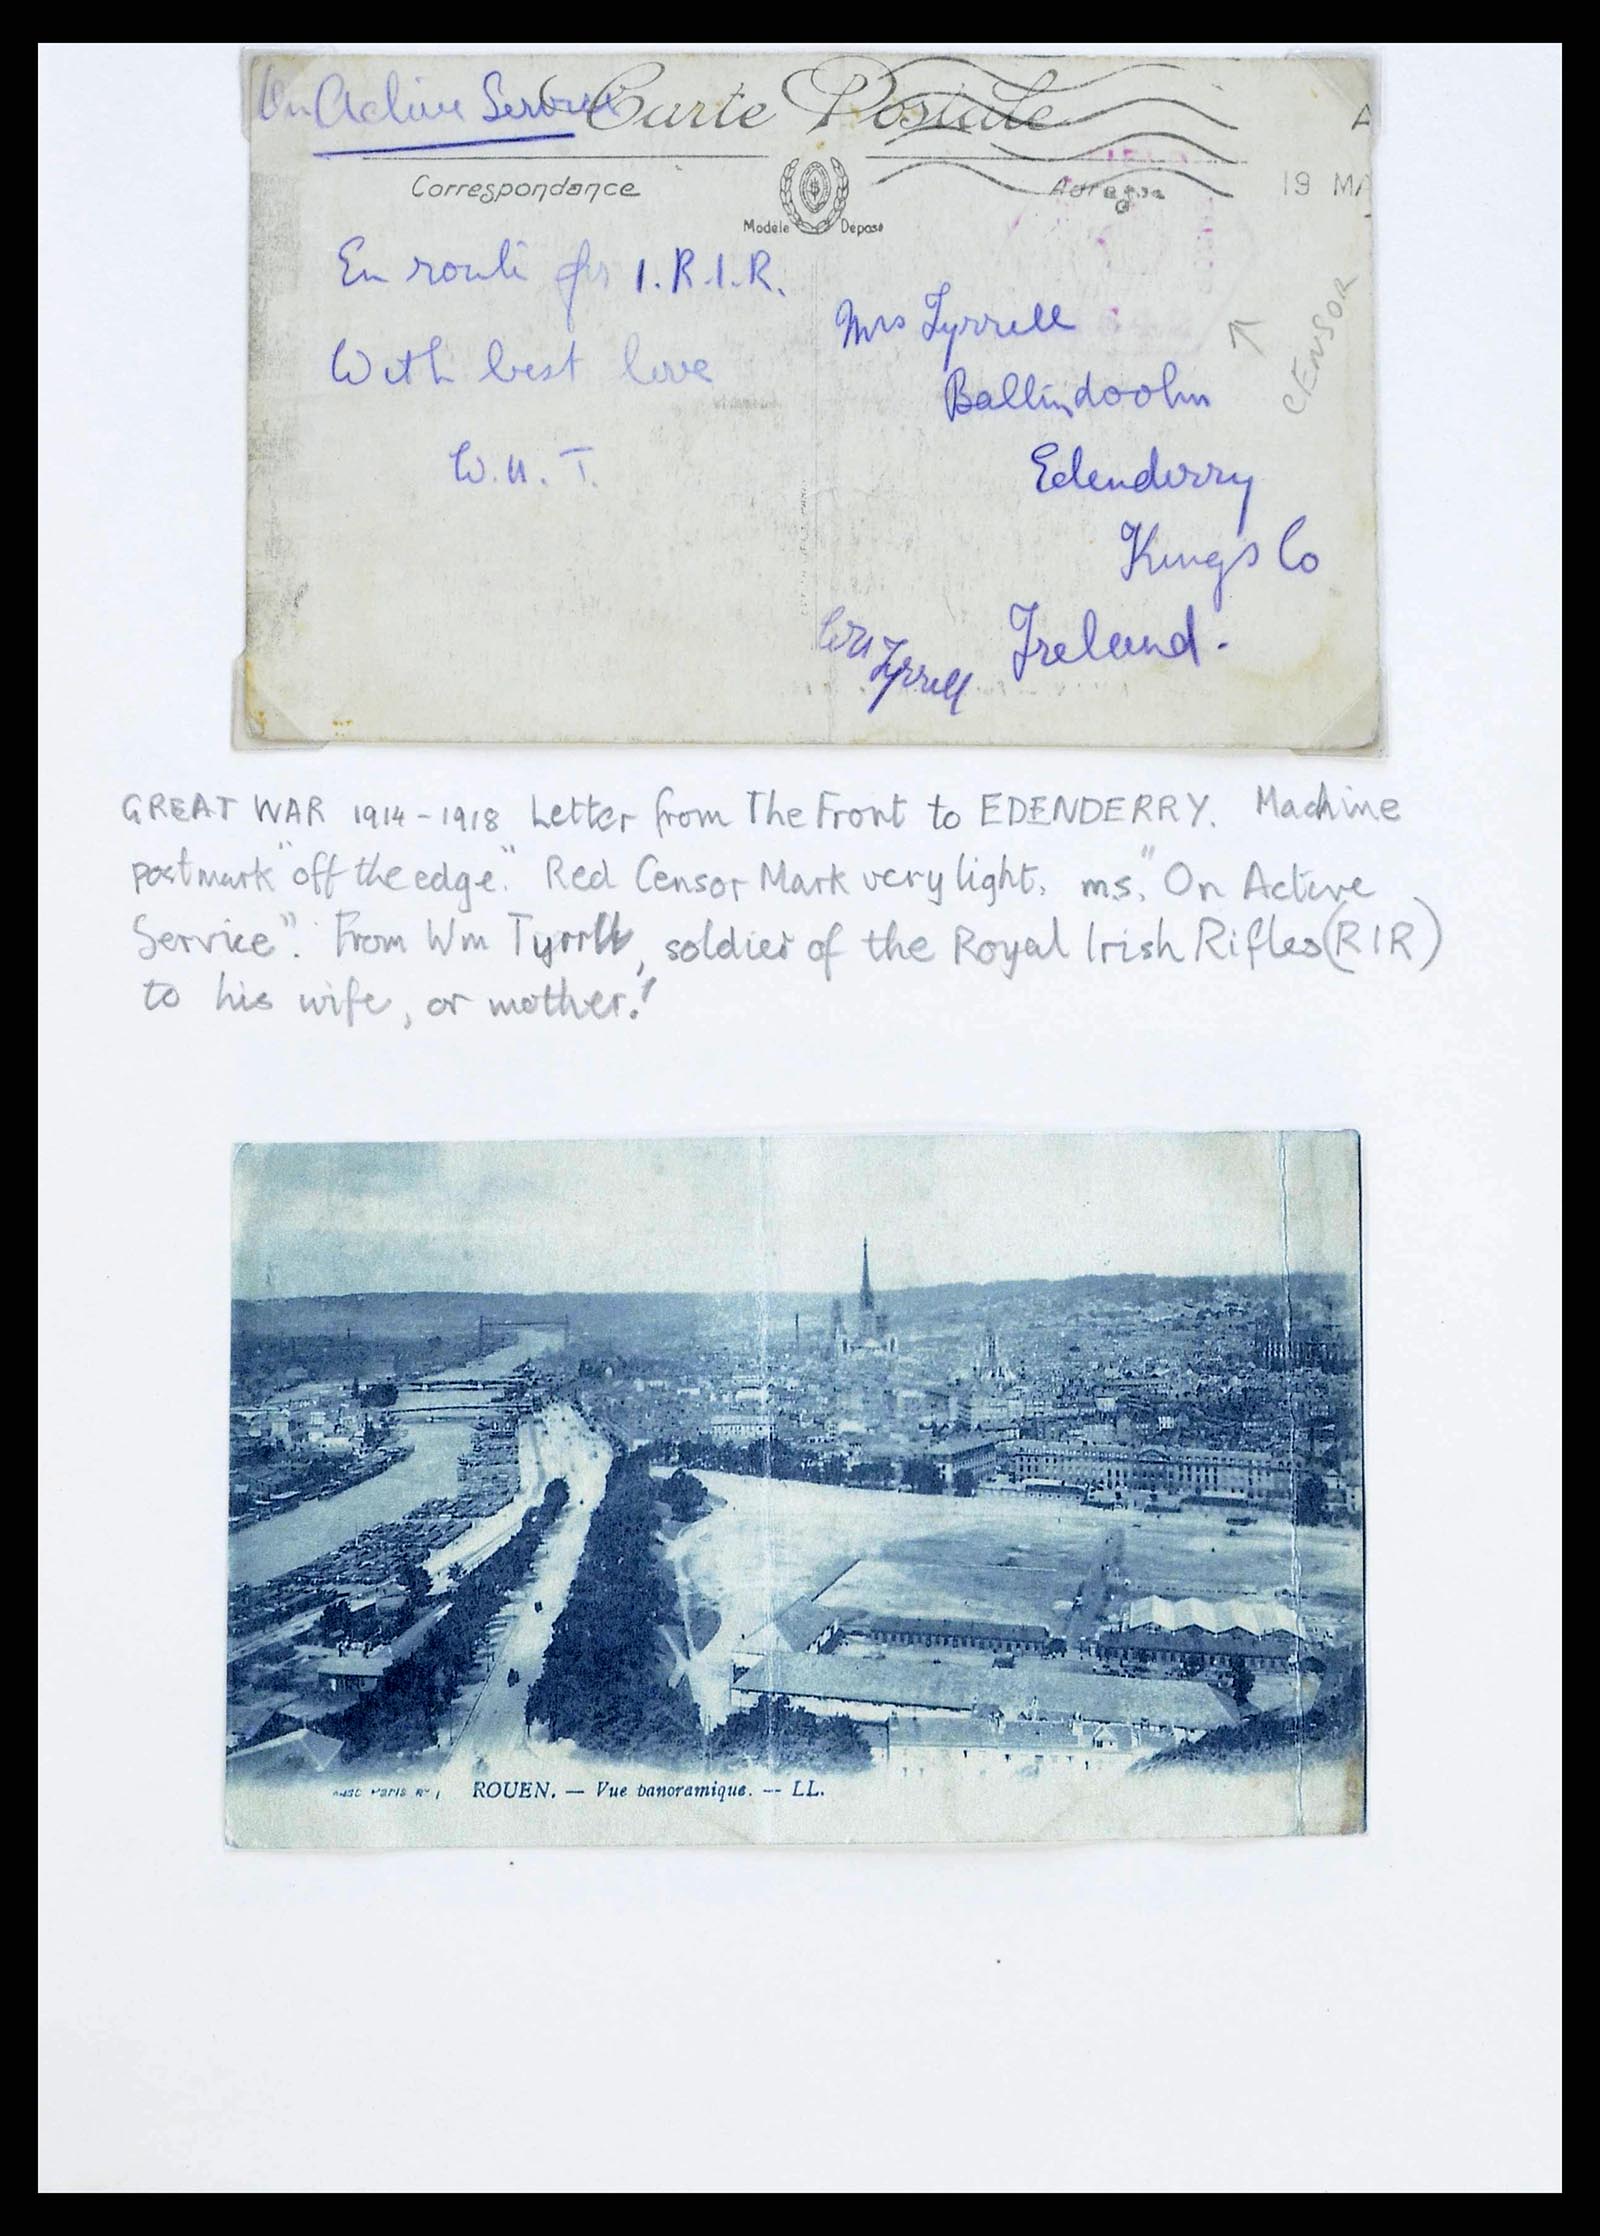 On Active Service
Carte Postale
A
Correspondance
Adresse
19 MA
Modèle Déposé
En route for 1.R.I.R.
With best love
W.U.T.
Mrs Tyrrell
Ballindoolin
Edenderry
Kings Co
Ireland.
Wm Tyrrell
CENSOR
GREAT WAR 1914-1918 Letter from The Front to EDENDERRY. Machine
postmark "off the edge." Red Censor Mark very light. ms. "On Active
Service". From Wm Tyrrell, soldier of the Royal Irish Rifles (RIR)
to his wife, or mother!
ROUEN. — Vue panoramique. — LL.